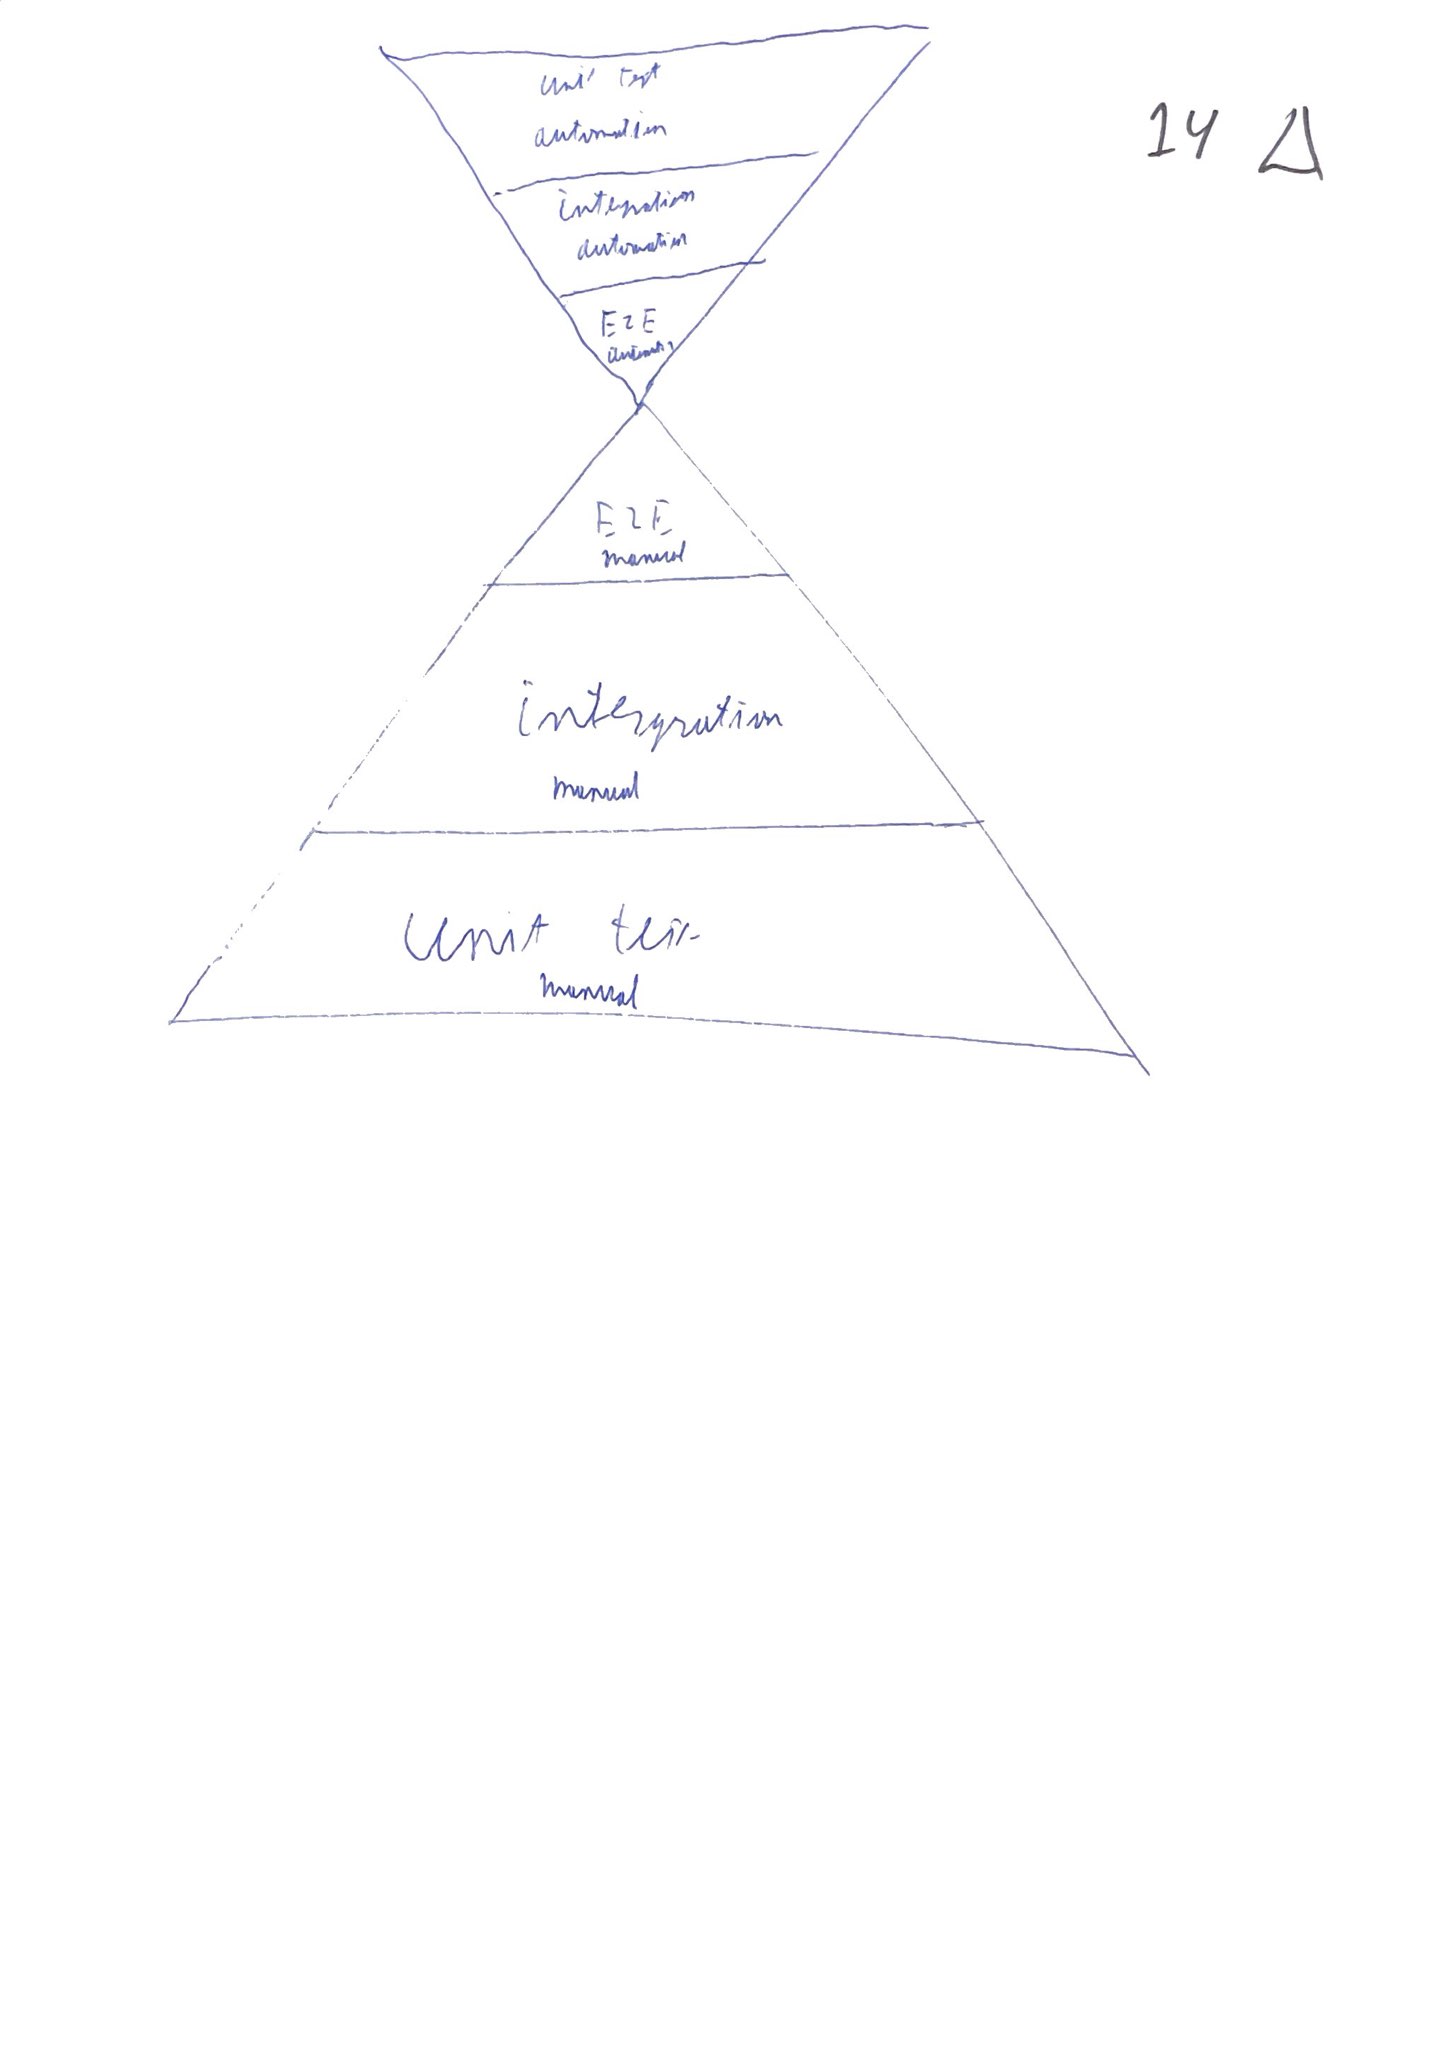 unit test
automation
14 Δ
integration
automation
E2E
automation
E2E
manual
intergration
manual
Unit test
manual